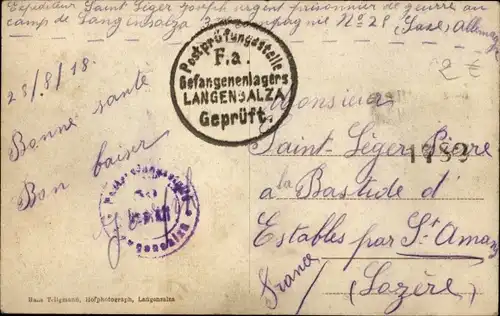 Expéditeur Saint Léger Joseph sergent prisonnier de guerre au
camp de Langensalza 3me compagnie No 28 (Saxe) Allemagne
2 €
28/8/18.
Bonne santé
Bon baiser
Postprüfungsstelle
F.a.
Gefangenenlagers
LANGENSALZA
Geprüft.
Monsieur
Saint-Léger Pierre
1783
à la Bastide d'
Estables par St Amans
(Lozère)
France
Hans Tellgmann, Hofphotograph, Langensalza